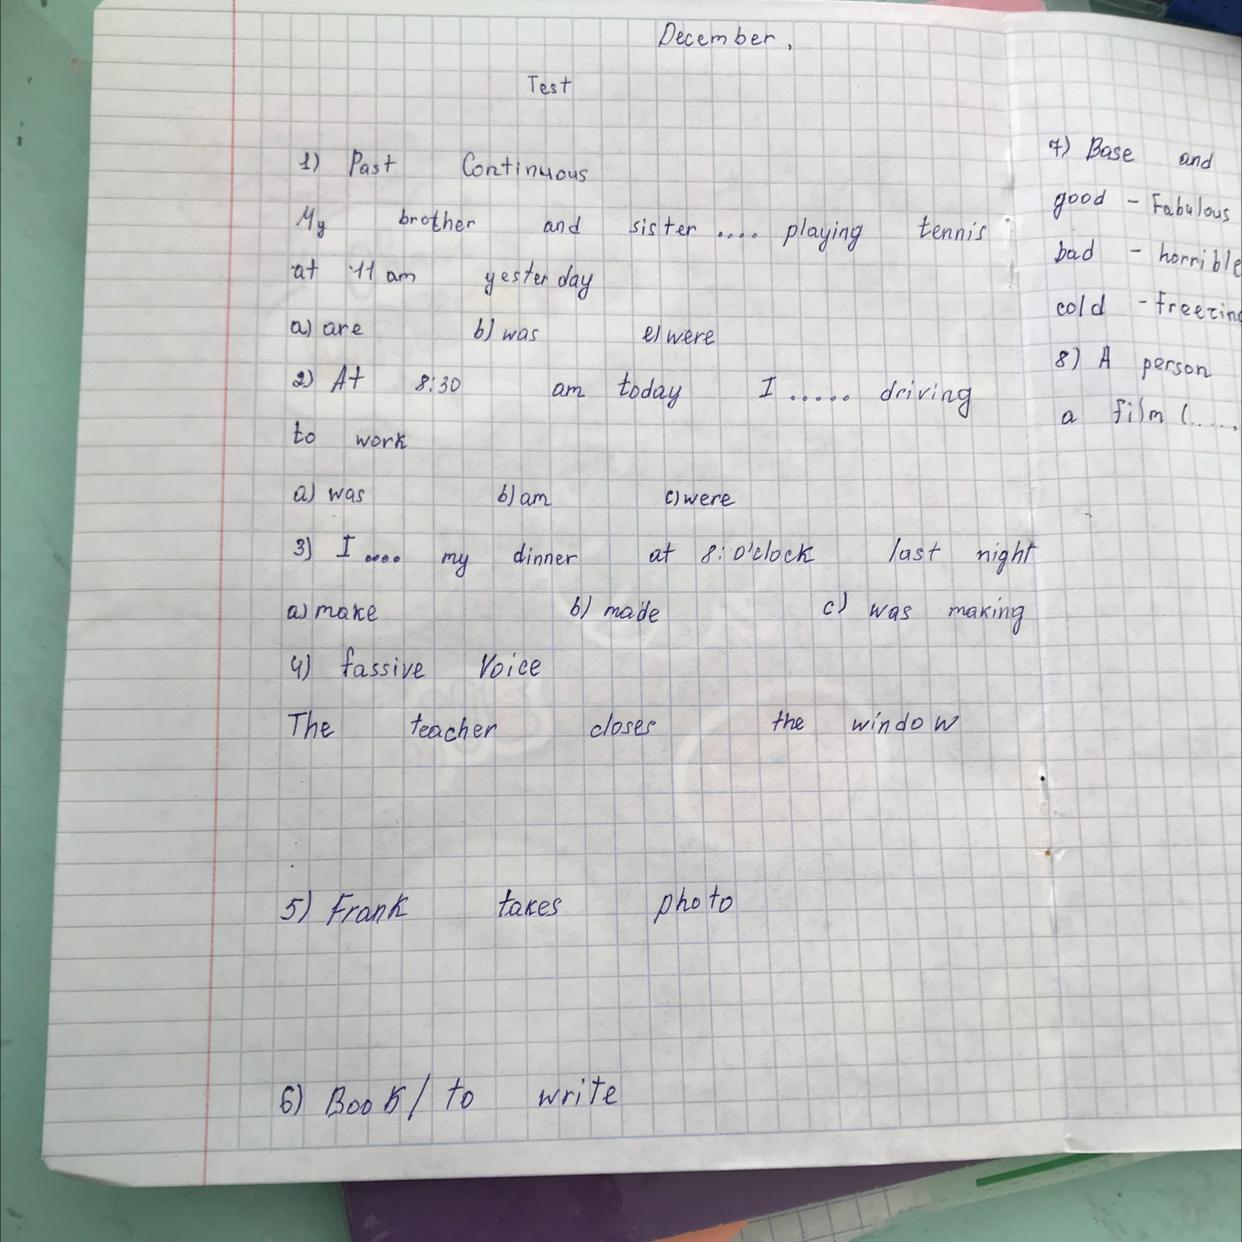 December,
Test
1) Past Continuous
My brother and sister .... playing tennis
at 11 am yesterday
a) are b) was c) were
2) At 8:30 am today I ..... driving
to work
a) was b) am c) were
3) I .... my dinner at 8:o'clock last night
a) make b) made c) was making
4) fassive Voice
The teacher closes the window
5) Frank takes photo
6) Book / to write
7) Base and
good - Fabulous
bad - horrible
cold - freezing
8) A person
a film (.....